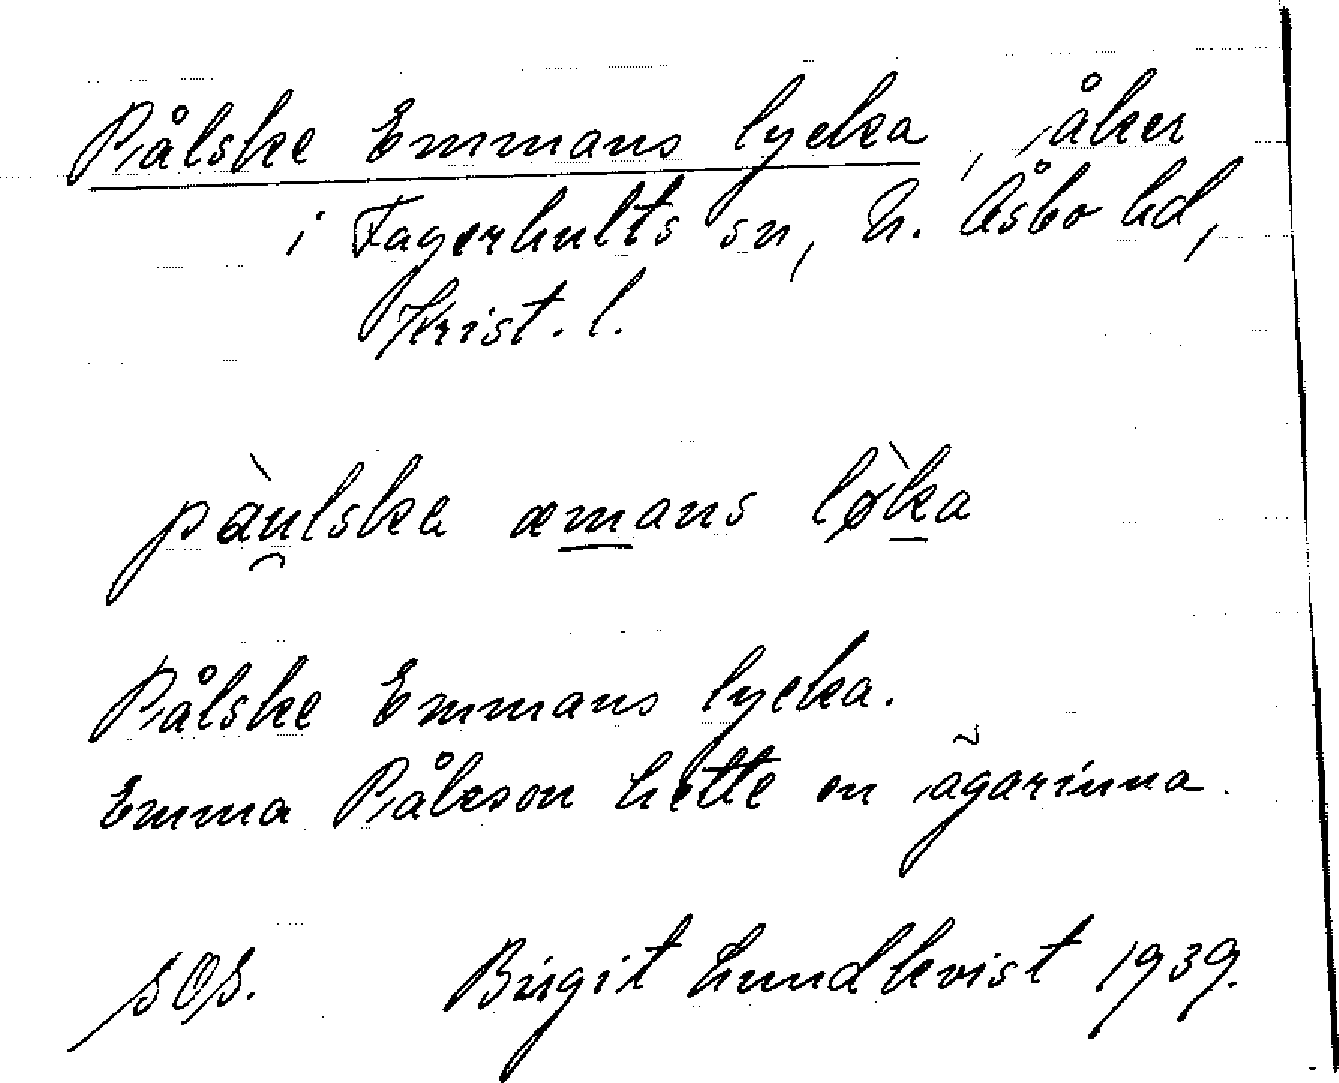 Pålske Emmans lycka, åker
i Fagerhults sn, N. Åsbo hd,
Krist. l.
pàu̯lska æmans lø̀ka
Pålske Emmans lycka.
Emma Pålsson hette en ägarinna.
SOS. Birgit Lundkvist 1939.